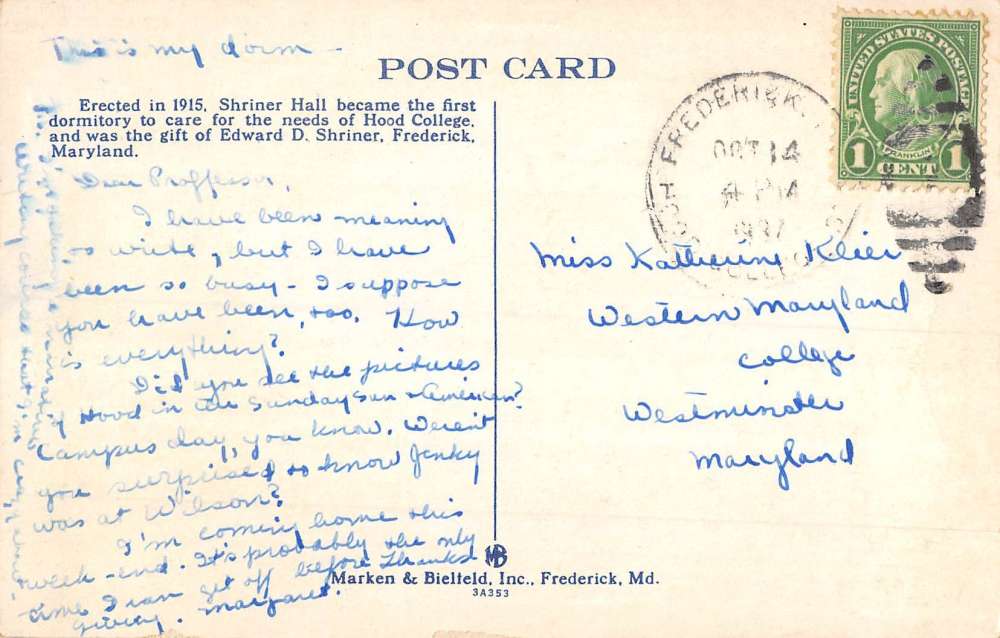 This is my dorm -
POST CARD
Erected in 1915, Shriner Hall became the first
dormitory to care for the needs of Hood College,
and was the gift of Edward D. Shriner, Frederick,
Maryland.
Dear Proffessor,
I have been meaning
to write, but I have
been so busy - I suppose
you have been, too. How
is everything?
Did you see the pictures
of Hood in the Sunday Sun + American?
Campus day, you know. Weren't
you surprised to know Jenky
was at Wilson?
I'm coming home this
week-end. It's probably the only
time I can get off before Thanks-
giving. Margaret.
P.S. I'm taking a
writing course that I'm crazy about.
FREDERICK
OCT 14
1937
UNITED STATES POSTAGE
FRANKLIN
1 CENT 1
Miss Katherine Klier
Western Maryland
College
Westminster
Maryland
MB
Marken & Bielfeld, Inc., Frederick, Md.
3A353